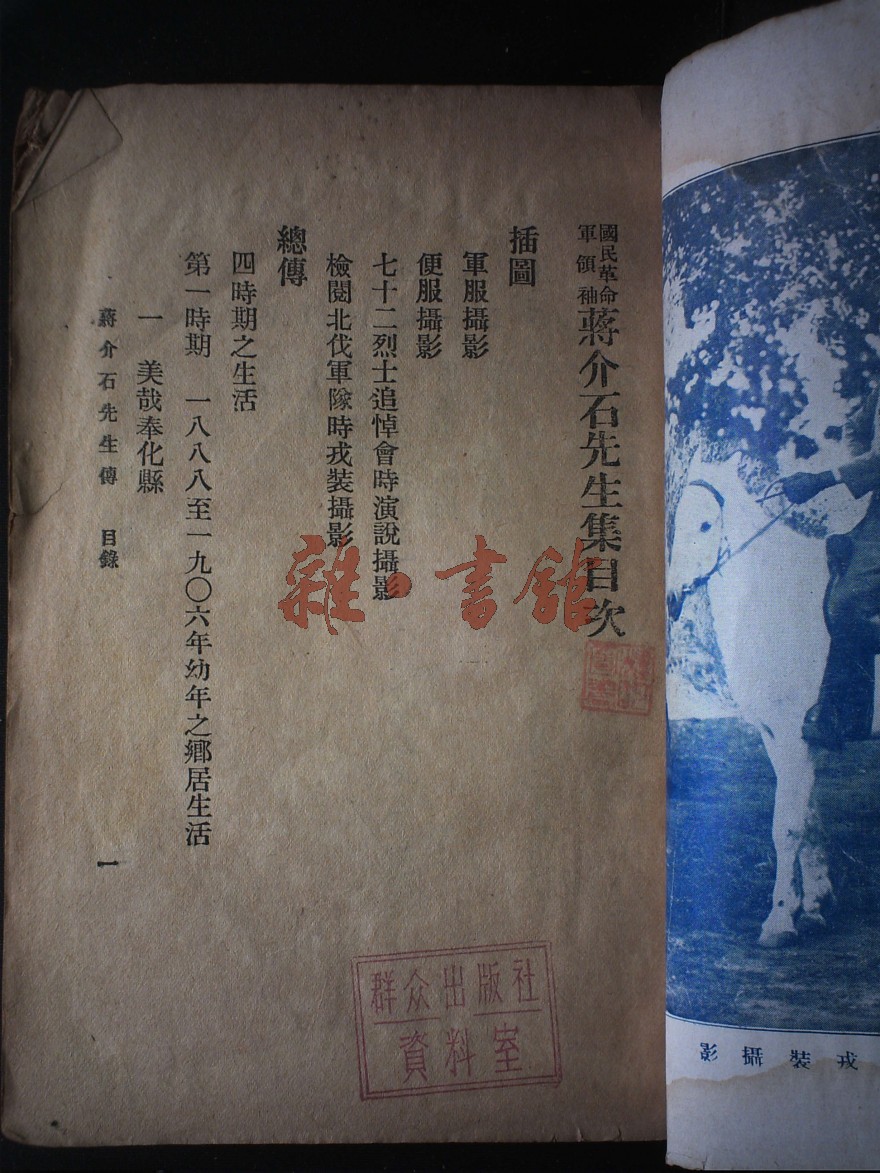 國民革命
軍領袖
蔣介石先生集目次
插圖
軍服攝影
便服攝影
七十二烈士追悼會時演說攝影
檢閱北伐軍隊時戎裝攝影
總傳
四時期之生活
第一時期 一八八八至一九〇六年幼年之鄉居生活
一 美哉奉化縣
蔣介石先生傳 目錄 一
雜·書館
群众出版社
資料室
戎裝攝影